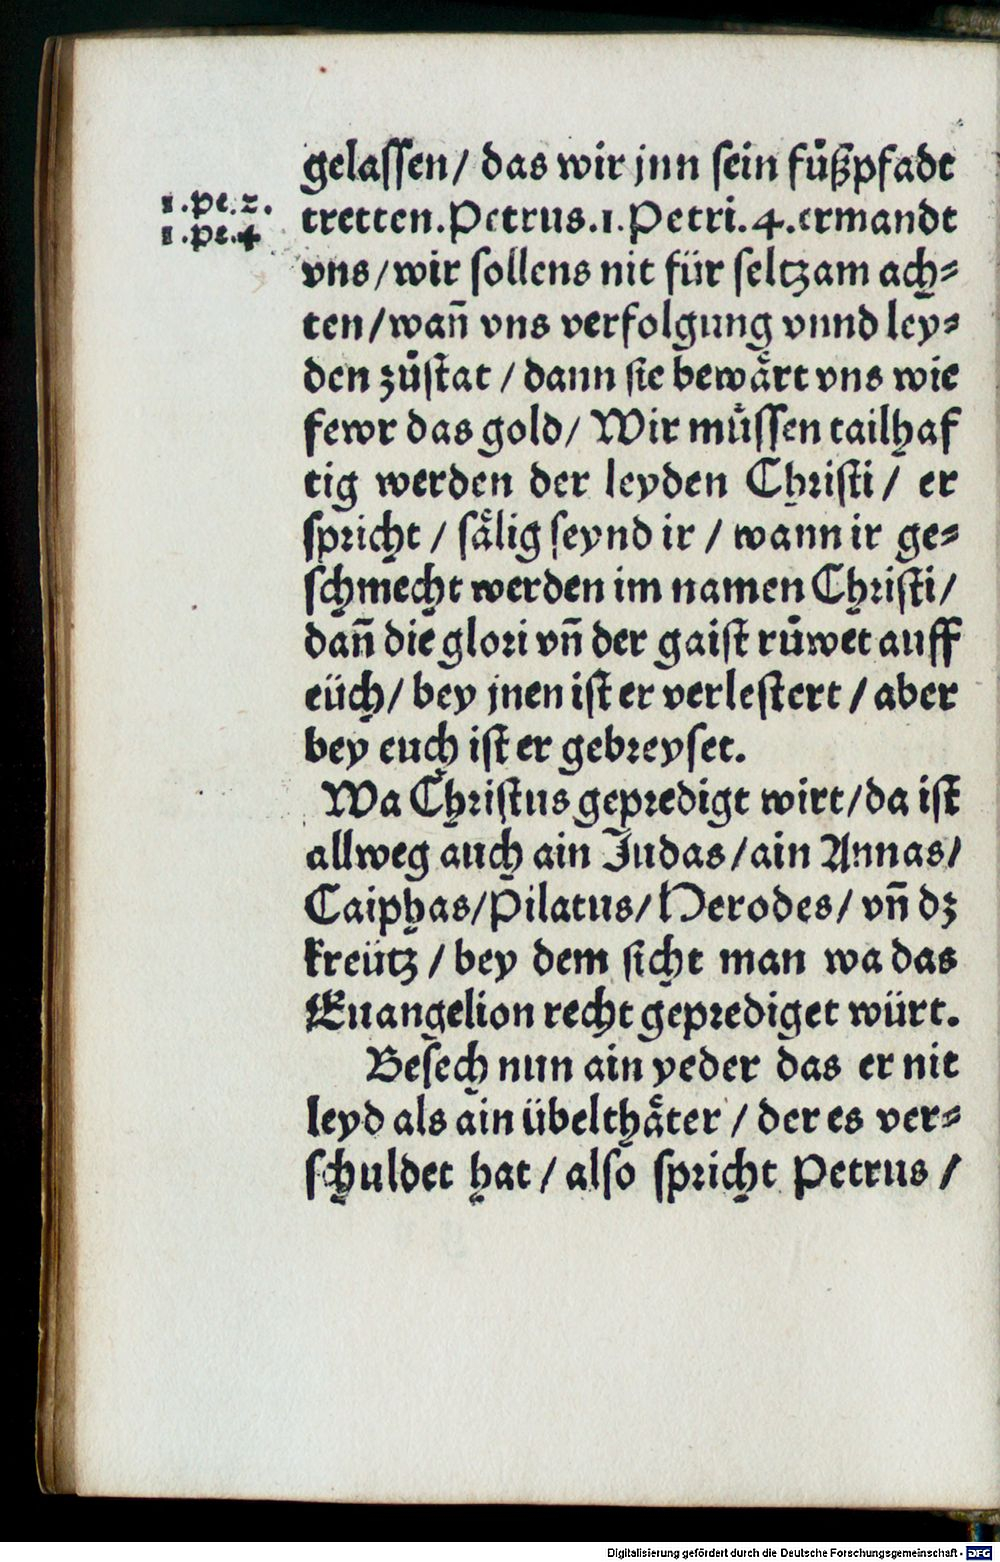 gelassen/ das wir jnn sein fůßpfadt
1.pe.2.
tretten.Petrus.1.Petri.4.ermandt
1.pe.4
vns/wir sollens nit für seltzam ach⸗
ten/wañ vns verfolgung vnnd ley⸗
den zůstat / dann sie bewaͤrt vns wie
fewr das gold/ Wir muͤssen tailhaf
tig werden der leyden Christi/ er
spricht / saͤlig seynd ir / wann ir ge⸗
schmecht werden im namen Christi/
dañ die glori vñ der gaist růwet auff
eüch/ bey jnen ist er verlestert / aber
bey euch ist er gebreyset.
Wa Christus gepredigt wirt/da ist
allweg auch ain Judas/ain Annas/
Caiphas/Pilatus/Herodes/ vñ dz
kreütz / bey dem sicht man wa das
Euangelion recht geprediget würt.
Besech nun ain yeder das er nit
leyd als ain übelthaͤter / der es ver⸗
schuldet hat / also spricht Petrus /
Digitalisierung gefördert durch die Deutsche Forschungsgemeinschaft - DFG